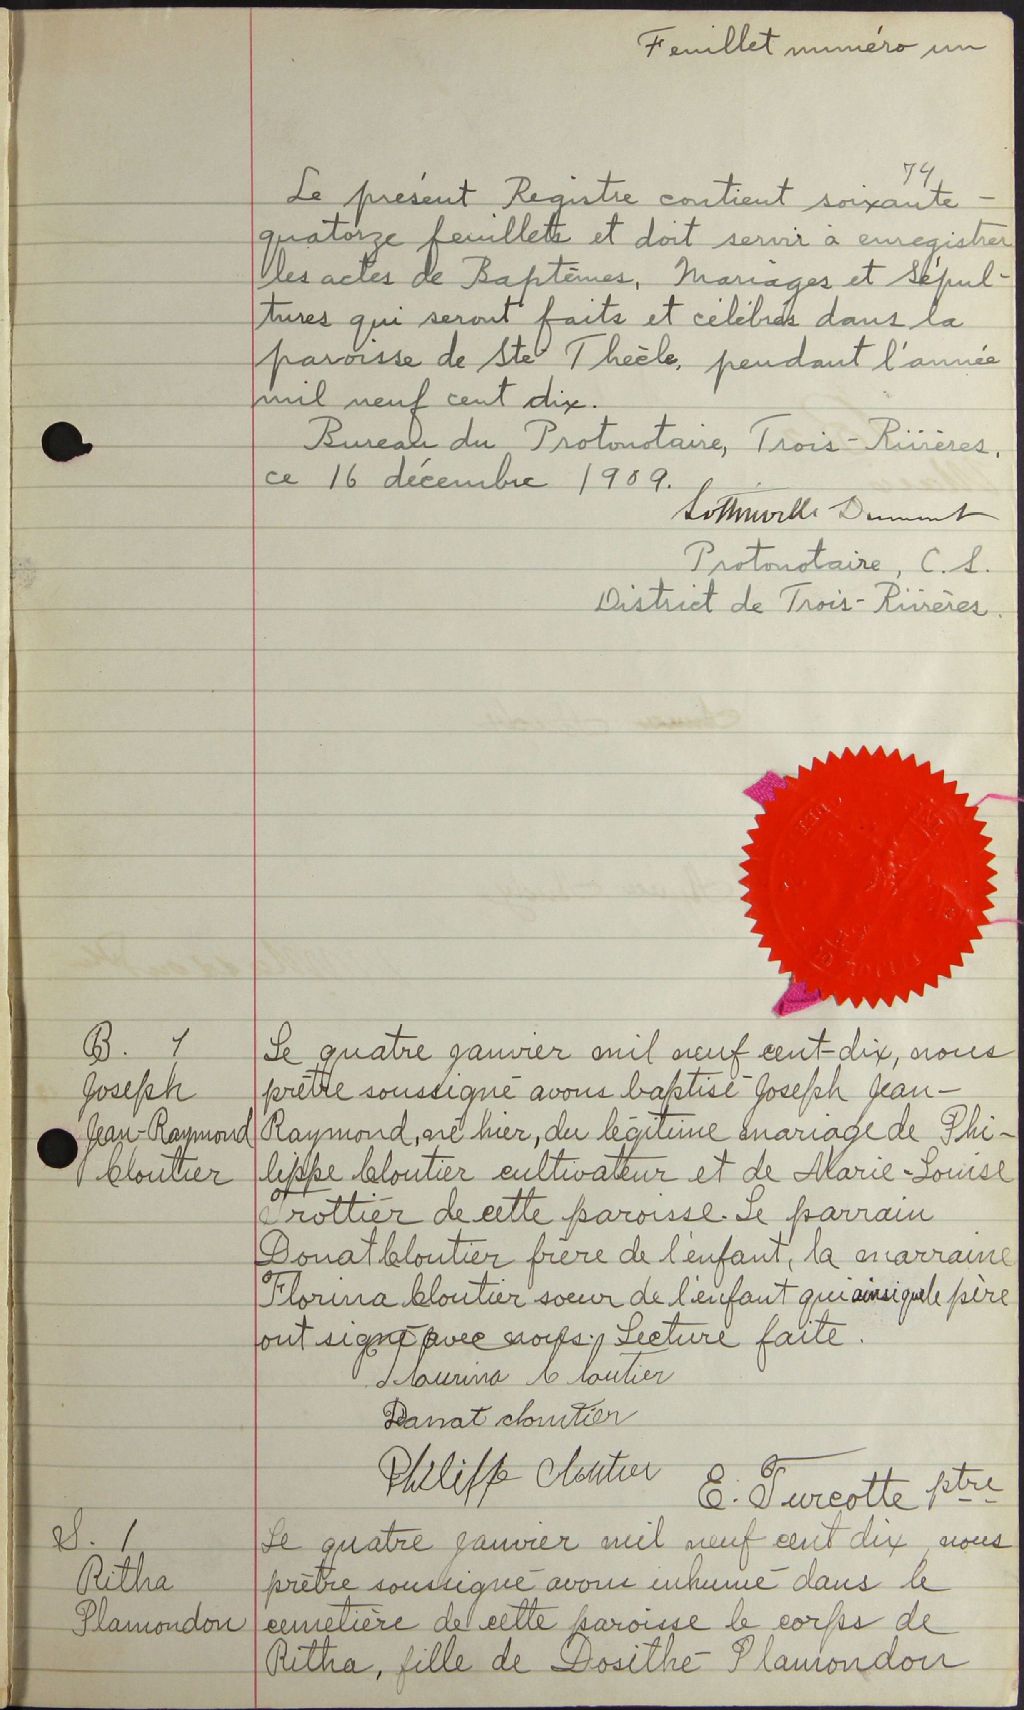 Feuillet numéro un
74
Le présent Registre contient soixante-
quatorze feuillets et doit servir à enregistrer
les actes de Baptêmes, Mariages et Sépul-
tures qui seront faits et célébrés dans la
paroisse de Ste Thècle, pendant l'année
mil neuf cent dix.
Bureau du Protonotaire, Trois-Rivières,
ce 16 décembre 1909.
Dumont
Protonotaire, C.S.
District de Trois-Rivières.
B. 1
Joseph
Jean-Raymond
Cloutier
Le quatre janvier mil neuf cent-dix, nous
prêtre soussigné avons baptisé Joseph Jean-
Raymond, né hier, du légitime mariage de Phi-
lippe Cloutier cultivateur et de Marie-Louise
Trottier de cette paroisse. Le parrain
Donat Cloutier frère de l'enfant, la marraine
Florina Cloutier soeur de l'enfant qui ainsi que le père
ont signé avec nous. Lecture faite.
Cloutier
Donat Cloutier
Philipp Cloutier
E. Turcotte ptre
S. 1
Ritha
Plamondon
Le quatre janvier mil neuf cent dix nous
prêtre soussigné avons inhumé dans le
cemetière de cette paroisse le corps de
Ritha, fille de Dosithé Plamondon